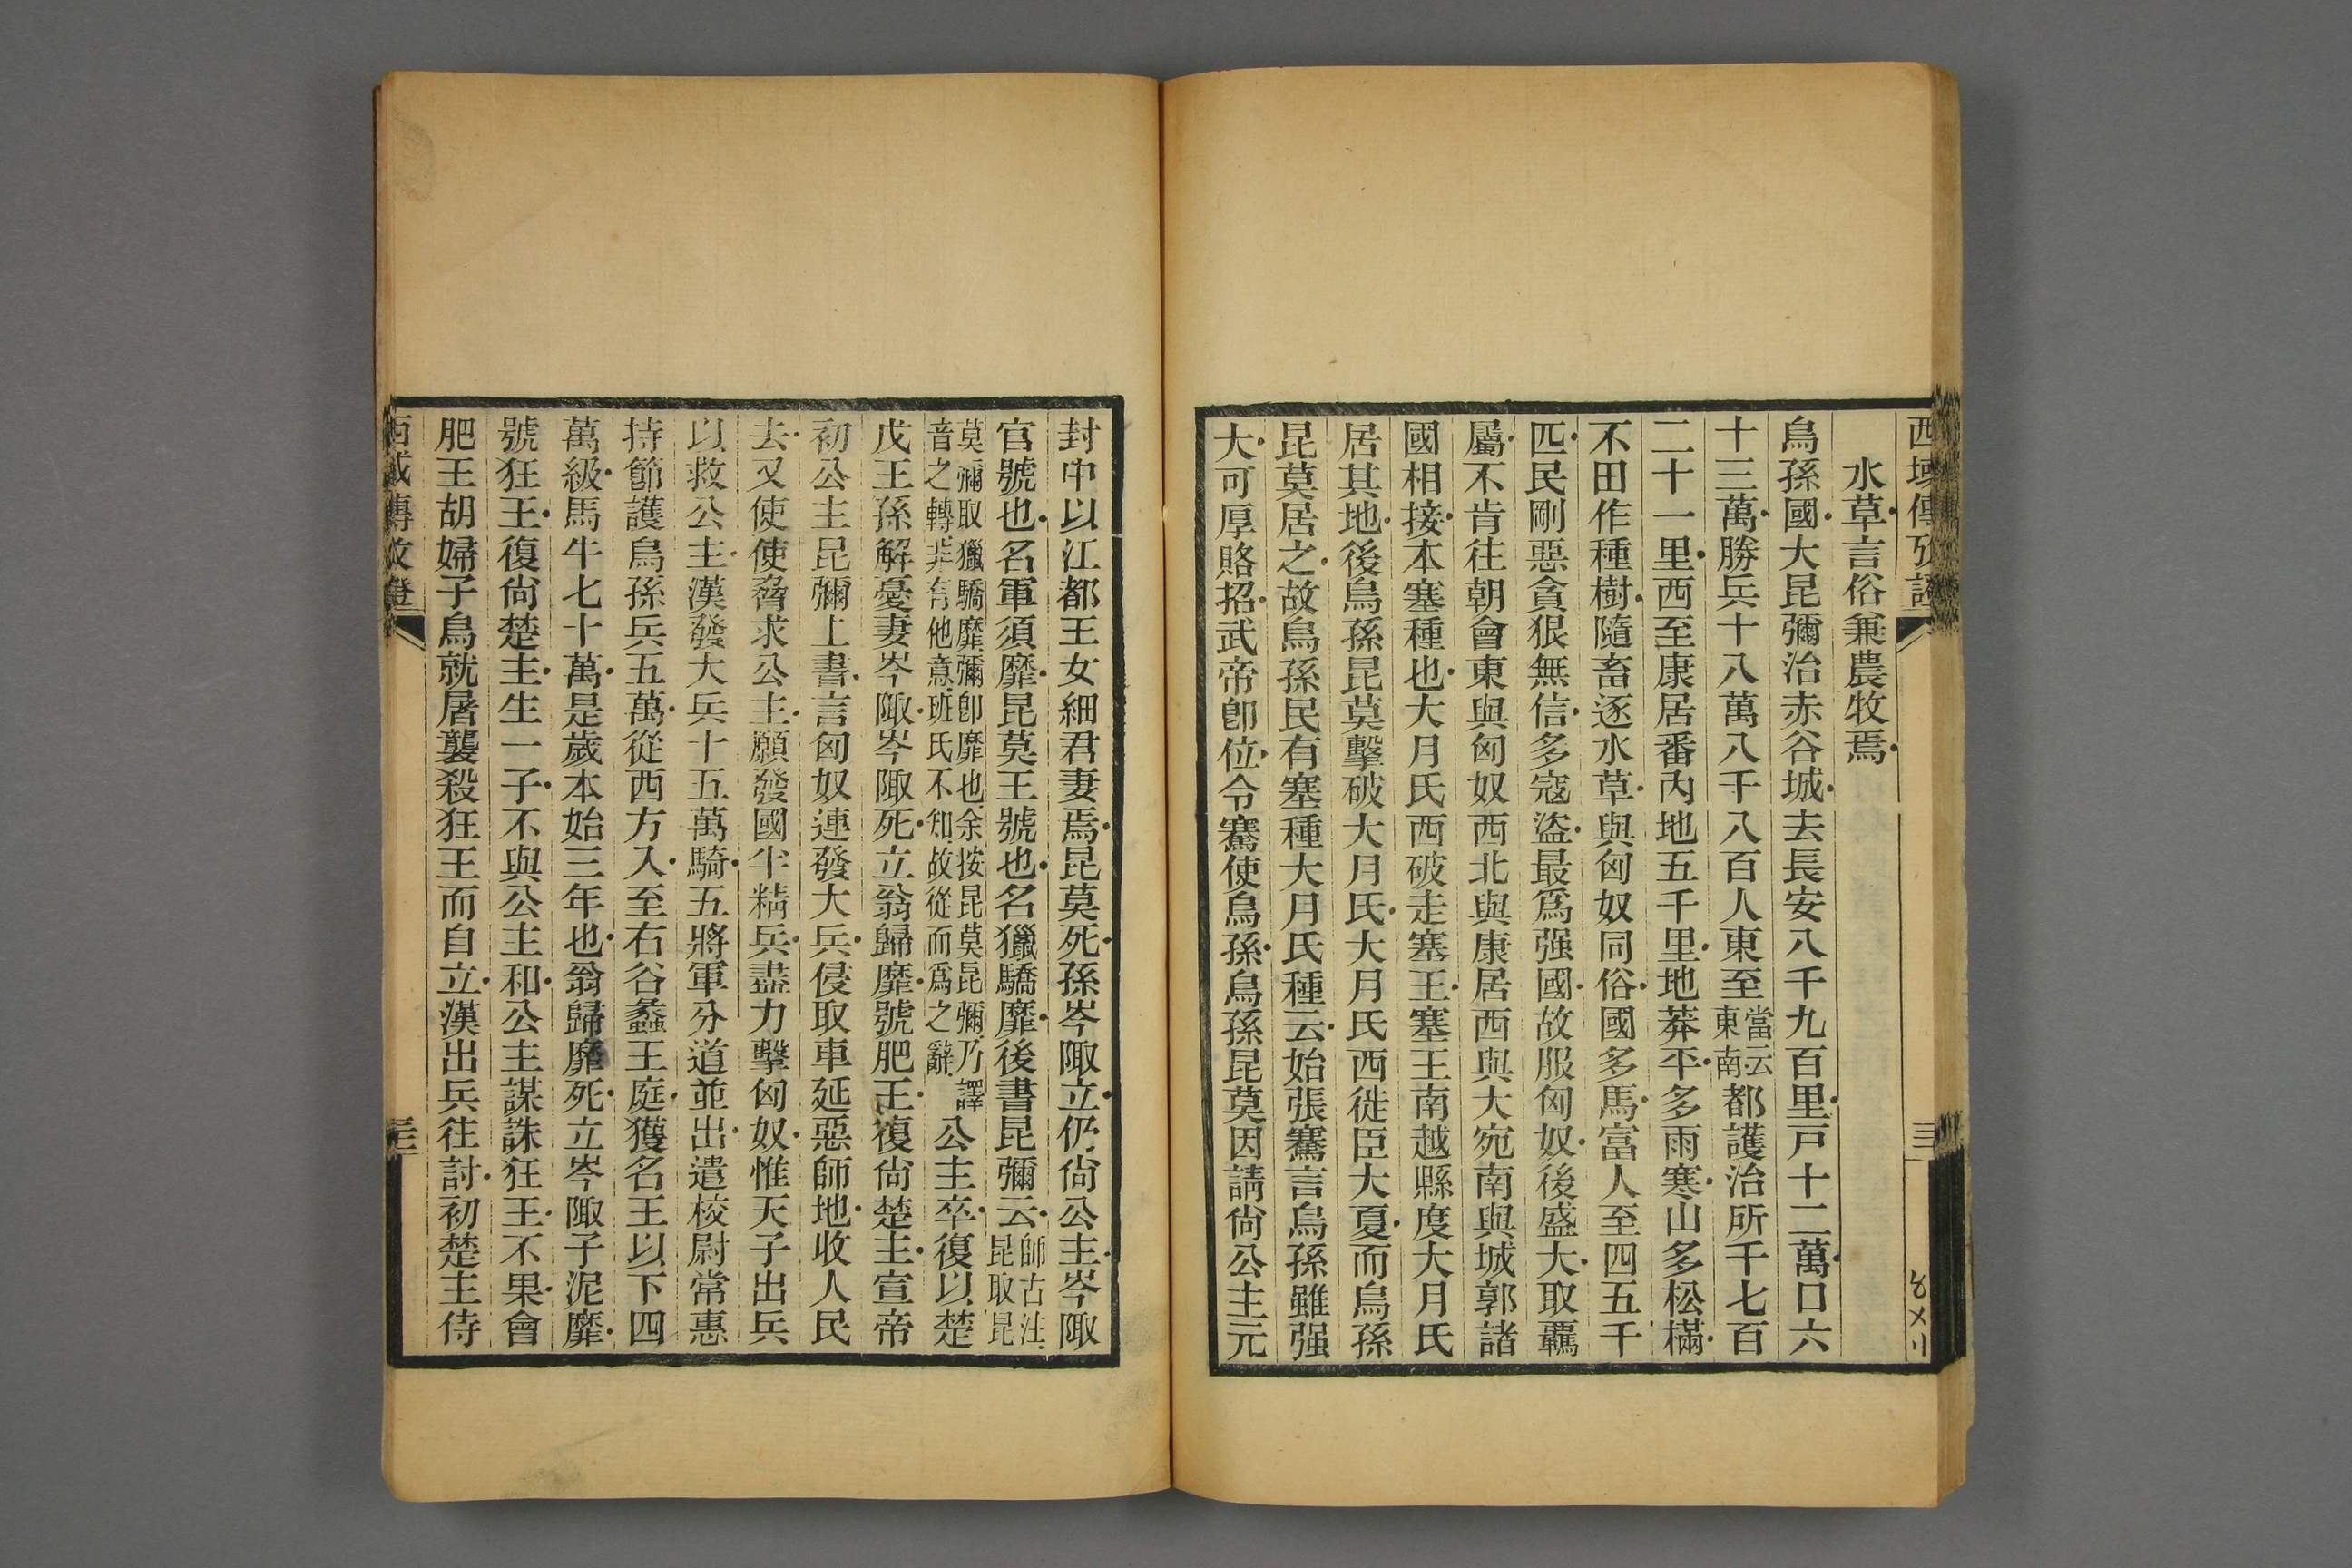 西域傳攷證
三
水草言俗兼農牧焉
烏孫國大昆彌治赤谷城去長安八千九百里戸十二萬口六
十三萬勝兵十八萬八千八百人東至當云東南都護治所千七百
二十一里西至康居番內地五千里地莽平多雨寒山多松樠
不田作種樹隨畜逐水草與匈奴同俗國多馬富人至四五千
匹民剛惡貪狠無信多寇盜最爲强國故服匈奴後盛大取羈
屬不肯往朝會東與匈奴西北與康居西與大宛南與城郭諸
國相接本塞種也大月氏西破走塞王塞王南越縣度大月氏
居其地後烏孫昆莫擊破大月氏大月氏西徙臣大夏而烏孫
昆莫居之故烏孫民有塞種大月氏種云始張騫言烏孫雖强
大可厚賂招武帝卽位令騫使烏孫烏孫昆莫因請尙公主元
封中以江都王女細君妻焉昆莫死孫岑陬立仍尙公主岑陬
官號也名軍須靡昆莫王號也名獵驕靡後書昆彌云師古注昆取昆
莫彌取獵驕靡彌卽靡也余按昆莫昆彌乃譯音之轉非有他意班氏不知故從而爲之辭公主卒復以楚
戊王孫解憂妻岑陬岑陬死立翁歸靡號肥王復尙楚主宣帝
初公主昆彌上書言匈奴連發大兵侵取車延惡師地收人民
去又使使脅求公主願發國半精兵盡力擊匈奴惟天子出兵
以救公主漢發大兵十五萬騎五將軍分道並出遣校尉常惠
持節護烏孫兵五萬從西方入至右谷蠡王庭獲名王以下四
萬級馬牛七十萬是歲本始三年也翁歸靡死立岑陬子泥靡
號狂王復尙楚主生一子不與公主和公主謀誅狂王不果會
肥王胡婦子烏就屠襲殺狂王而自立漢出兵往討初楚主侍
西域傳攷證